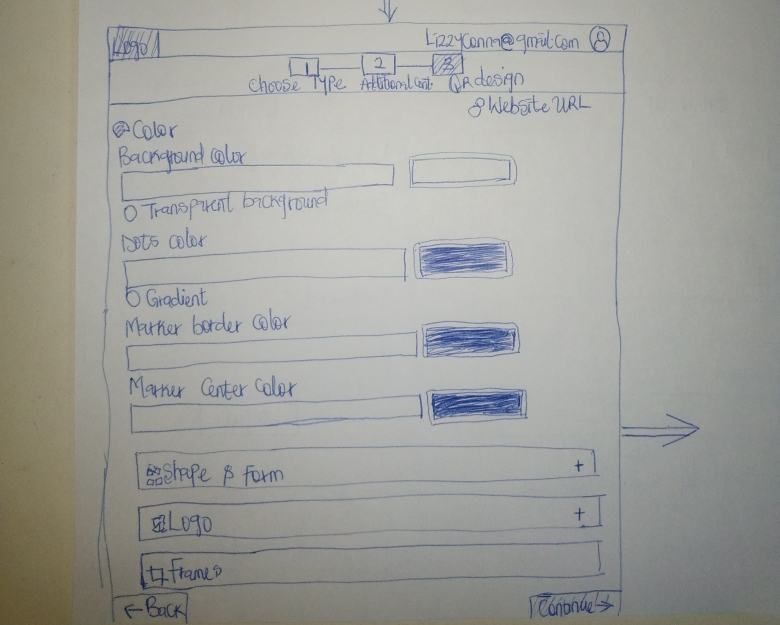 Logo
LizzyConna@gmail.com
1 2 3
Choose Type Additional Cont. QR design
Website URL
Color
Background color
Transparent background
Dots color
Gradient
Marker border color
Marker Center Color
Shape & Form +
Logo +
Frames
← Back Continue →